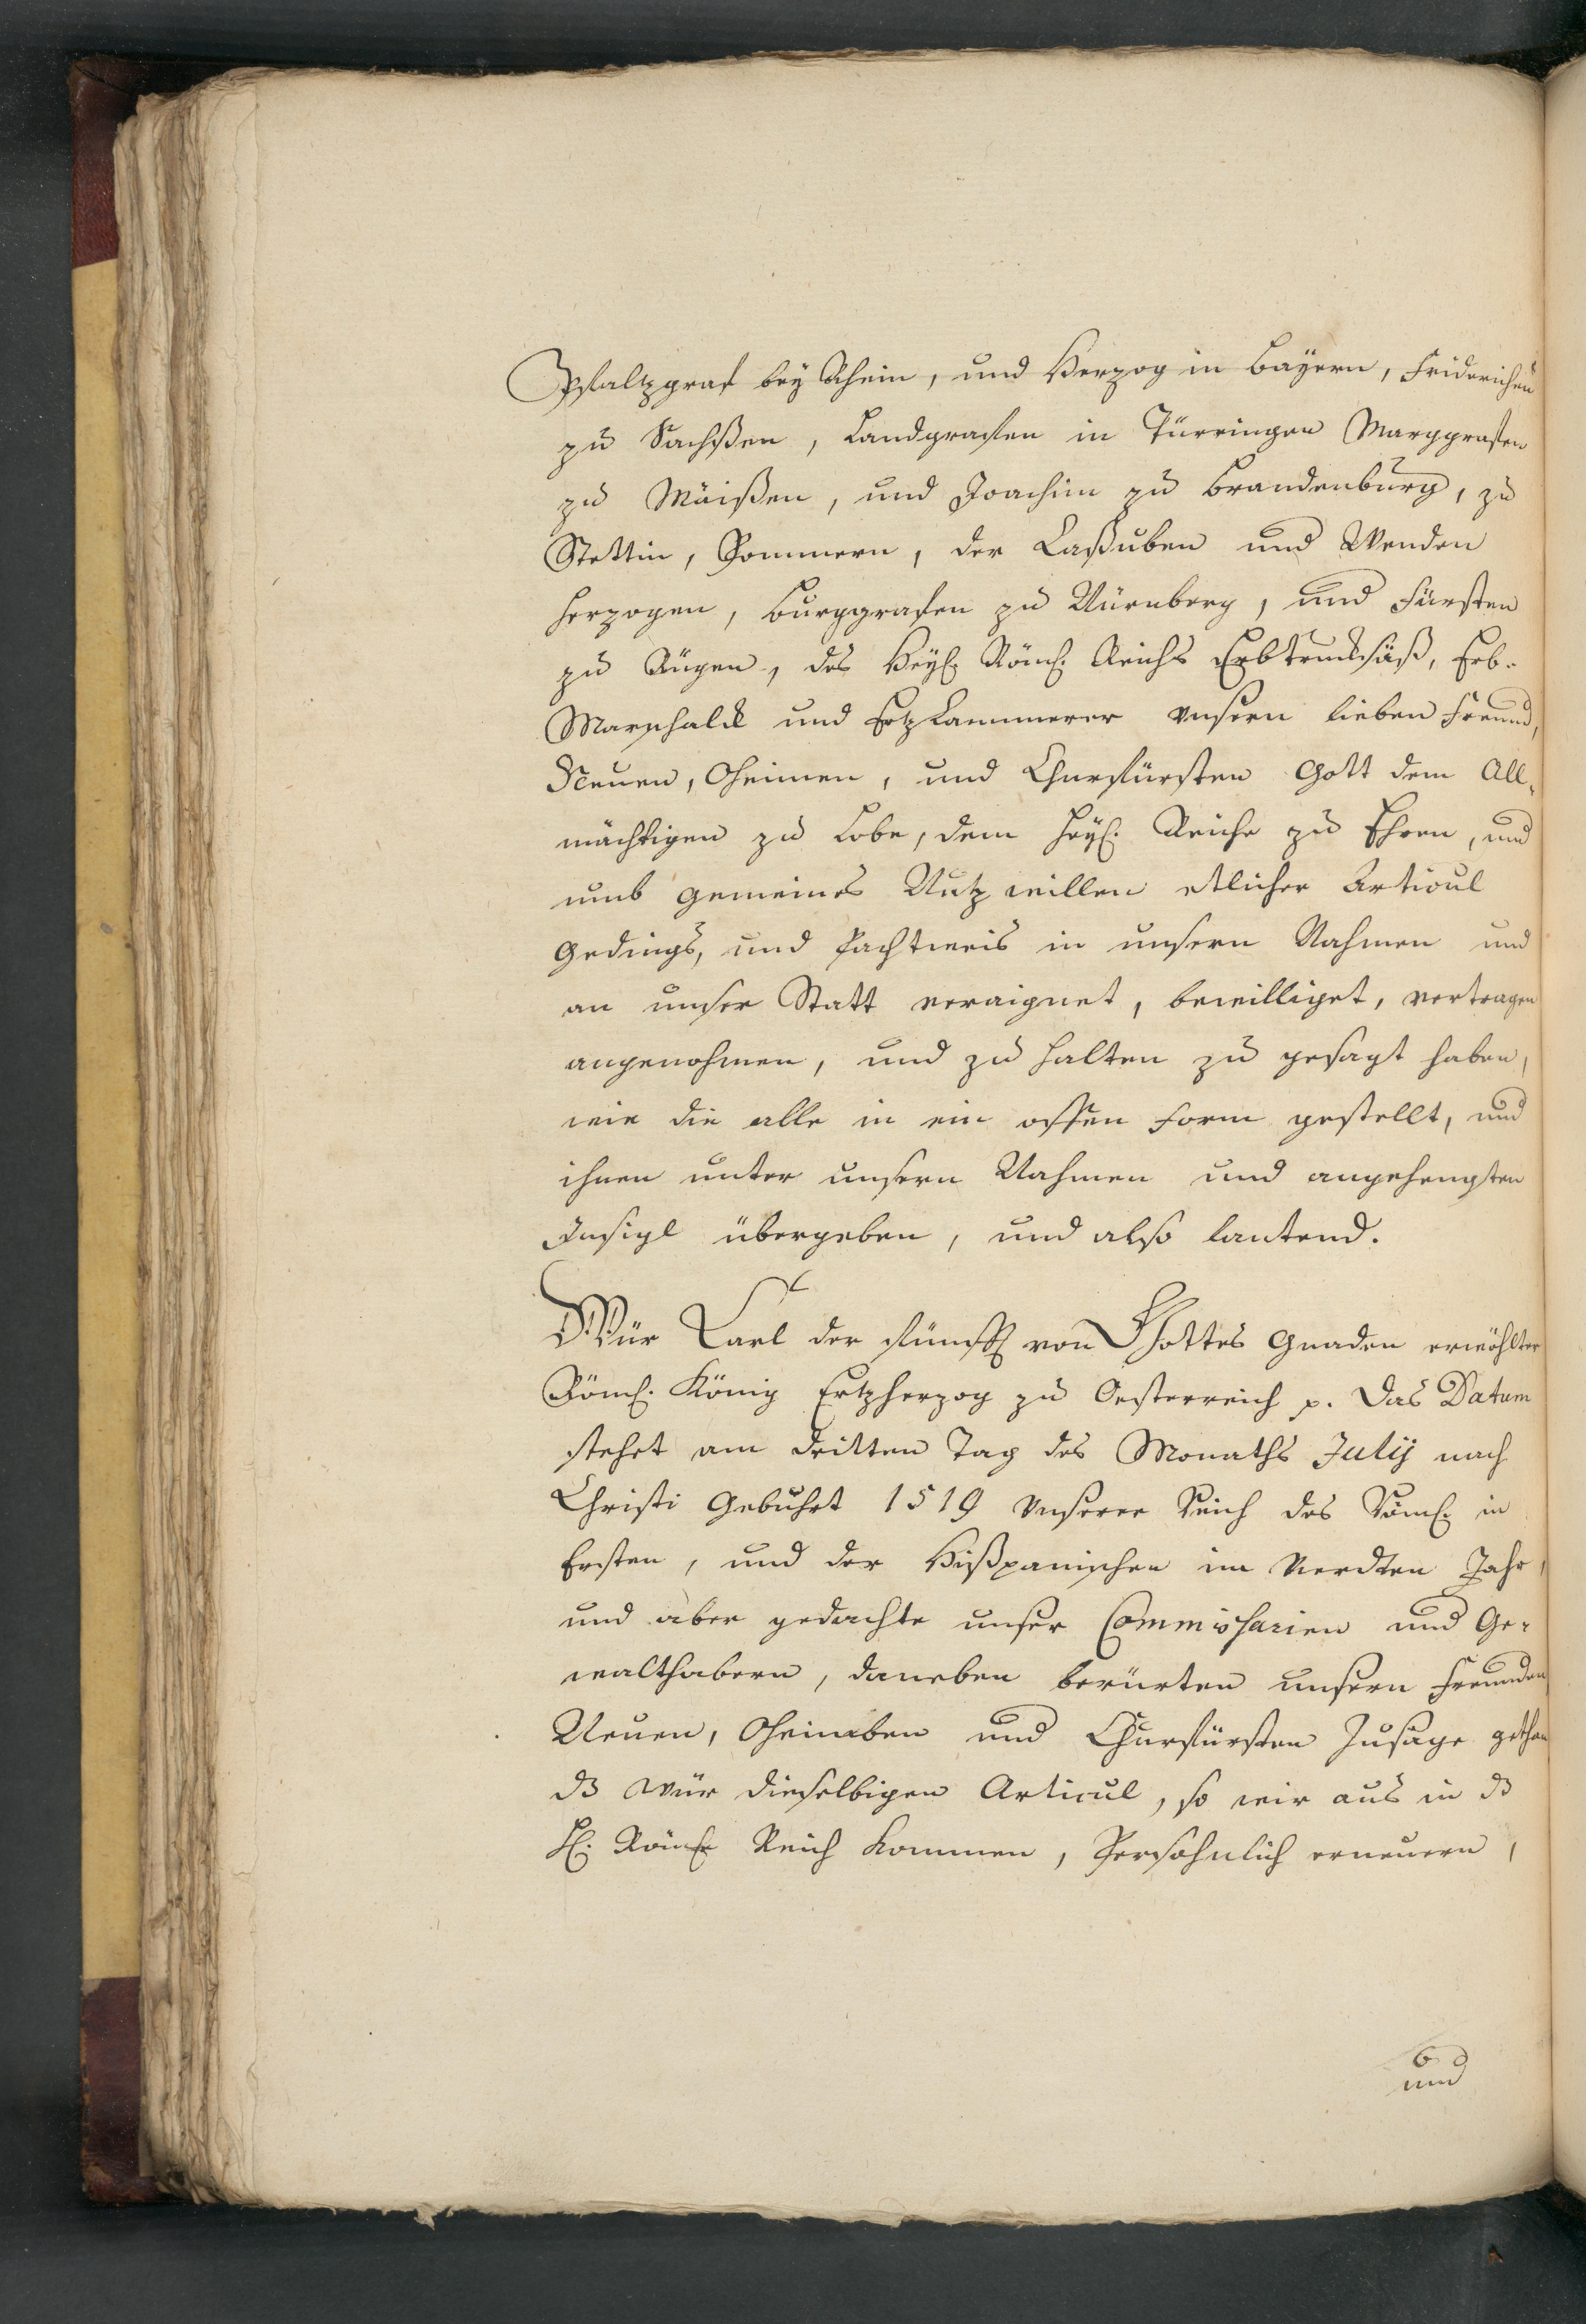 Pfaltzgraf bey Rhein, und Herzog in Bayern, Friderichen
zu Sachßen, Landgrafen in Türringen Marggrafen
zu Mäißen, und Joachim zu Brandenburg, zu
Stettin, Pommern, der Caßuben und Wenden
Herzogen, Burggrafen zu Nürnberg, und Fürsten
zu Rügen, des Heyl. Röm. Reichs Erbtrucksäß, Erb-
Marschalck und Ertz Cammerer unsern lieben Freund,
Neuen, Oheimen, und Churfürsten Gott dem All-
mächtigen zu Lobe, dem Heyl. Reiche zu Ehren, und
umb gemeines Nutz willen etlicher Articul
Gedings, und Pachtweis in unsern Nahmen und
an unser Statt veraignet, bewilliget, vertragen
angenohmen, und zu halten zu gesagt haben,
wie die alle in ein offen Form gestellt, und
ihnen unter unsern Nahmen und angehengten
Insigl übergeben, und also lautend.
Wür Carl der fünfft von Gottes Gnaden erwöhlter
Röm. König Ertzherzog zu Oesterreich p. Das Datum
stehet am dritten Tag des Monaths July nach
Christi Gebuhrt 1519 unserer Reich des Röm. in
Ersten, und der Hißpanischen im Vierdten Jahr,
und aber gedachte unser Commissarien und Ge-
walthabern, daneben berürten unsern Freunden
Neuen, Oheimben und Churfürsten Zusage gethan
dz wür dieselbigen Articul, so wir aus in dz
Hl. Röm. Reich kommen, Persohnlich erneuern,
und